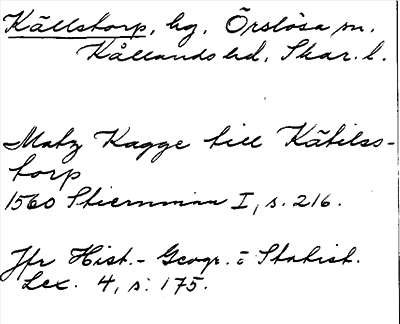 Källstorp, hg, Örslösa sn.
Kållands hd, Skar. l.
Matz Kagge till Kätilss-
torp
1560 Stiernman I, s. 216.
Jfr Hist.- Geogr. o. Statist.
Lex. 4, s. 175.